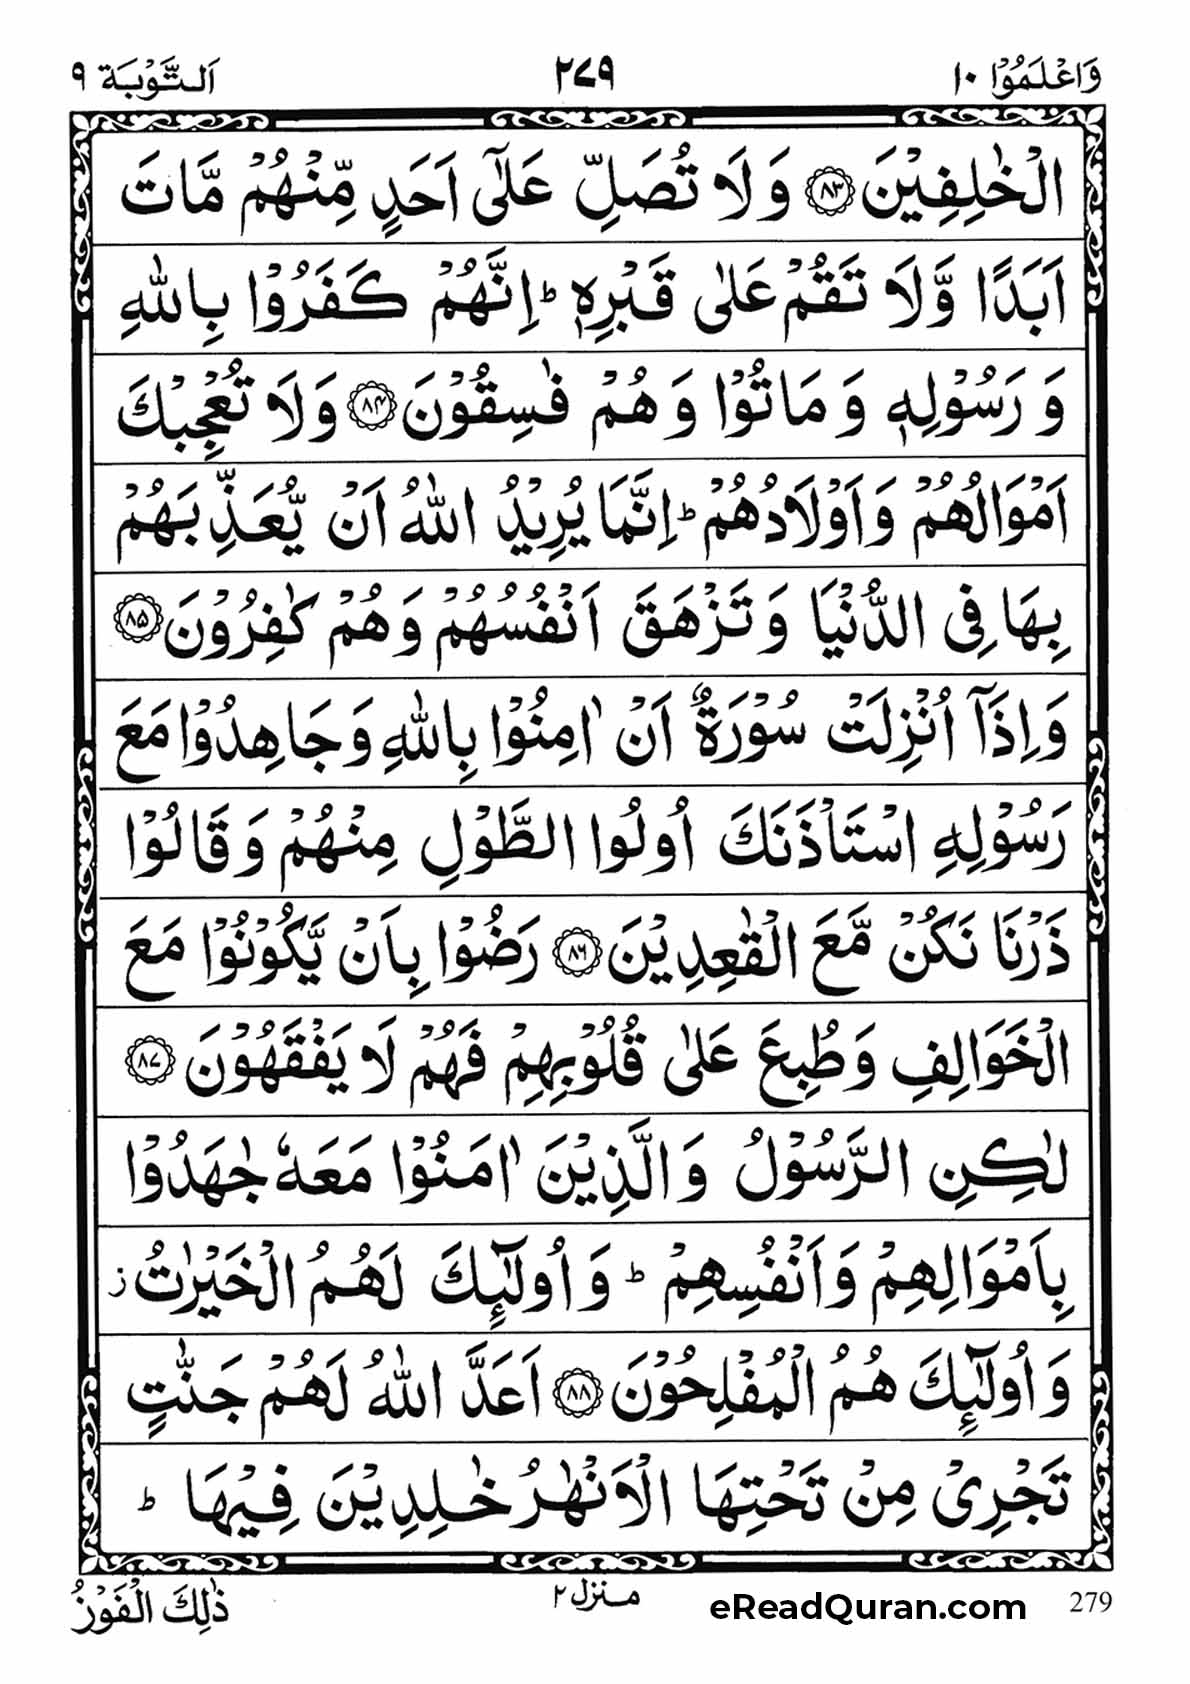 وَاعْلَمُوْۤا ۱۰ ۲۷۹ اَلتَّوْبَة ۹
الْخٰلِفِيْنَ ﴿۸۳﴾ وَلَا تُصَلِّ عَلٰۤى اَحَدٍ مِّنْهُمْ مَّاتَ
اَبَدًا وَّلَا تَقُمْ عَلٰى قَبْرِهٖ ؕ اِنَّهُمْ كَفَرُوْا بِاللّٰهِ
وَ رَسُوْلِهٖ وَ مَاتُوْا وَ هُمْ فٰسِقُوْنَ ﴿۸۴﴾ وَلَا تُعْجِبْكَ
اَمْوَالُهُمْ وَ اَوْلَادُهُمْ ؕ اِنَّمَا يُرِيْدُ اللّٰهُ اَنْ يُّعَذِّبَهُمْ
بِهَا فِى الدُّنْيَا وَ تَزْهَقَ اَنْفُسُهُمْ وَ هُمْ كٰفِرُوْنَ ﴿۸۵﴾
وَ اِذَاۤ اُنْزِلَتْ سُوْرَةٌ اَنْ اٰمِنُوْا بِاللّٰهِ وَ جَاهِدُوْا مَعَ
رَسُوْلِهِ اسْتَاْذَنَكَ اُولُوا الطَّوْلِ مِنْهُمْ وَ قَالُوْا
ذَرْنَا نَكُنْ مَّعَ الْقٰعِدِيْنَ ﴿۸۶﴾ رَضُوْا بِاَنْ يَّكُوْنُوْا مَعَ
الْخَوَالِفِ وَ طُبِعَ عَلٰى قُلُوْبِهِمْ فَهُمْ لَا يَفْقَهُوْنَ ﴿۸۷﴾
لٰكِنِ الرَّسُوْلُ وَ الَّذِيْنَ اٰمَنُوْا مَعَهٗ جٰهَدُوْا
بِاَمْوَالِهِمْ وَ اَنْفُسِهِمْ ؕ وَ اُولٰٓئِكَ لَهُمُ الْخَيْرٰتُ ز
وَ اُولٰٓئِكَ هُمُ الْمُفْلِحُوْنَ ﴿۸۸﴾ اَعَدَّ اللّٰهُ لَهُمْ جَنّٰتٍ
تَجْرِىْ مِنْ تَحْتِهَا الْاَنْهٰرُ خٰلِدِيْنَ فِيْهَا ؕ
279 eReadQuran.com منزل ۲ ذٰلِكَ الْفَوْزُ